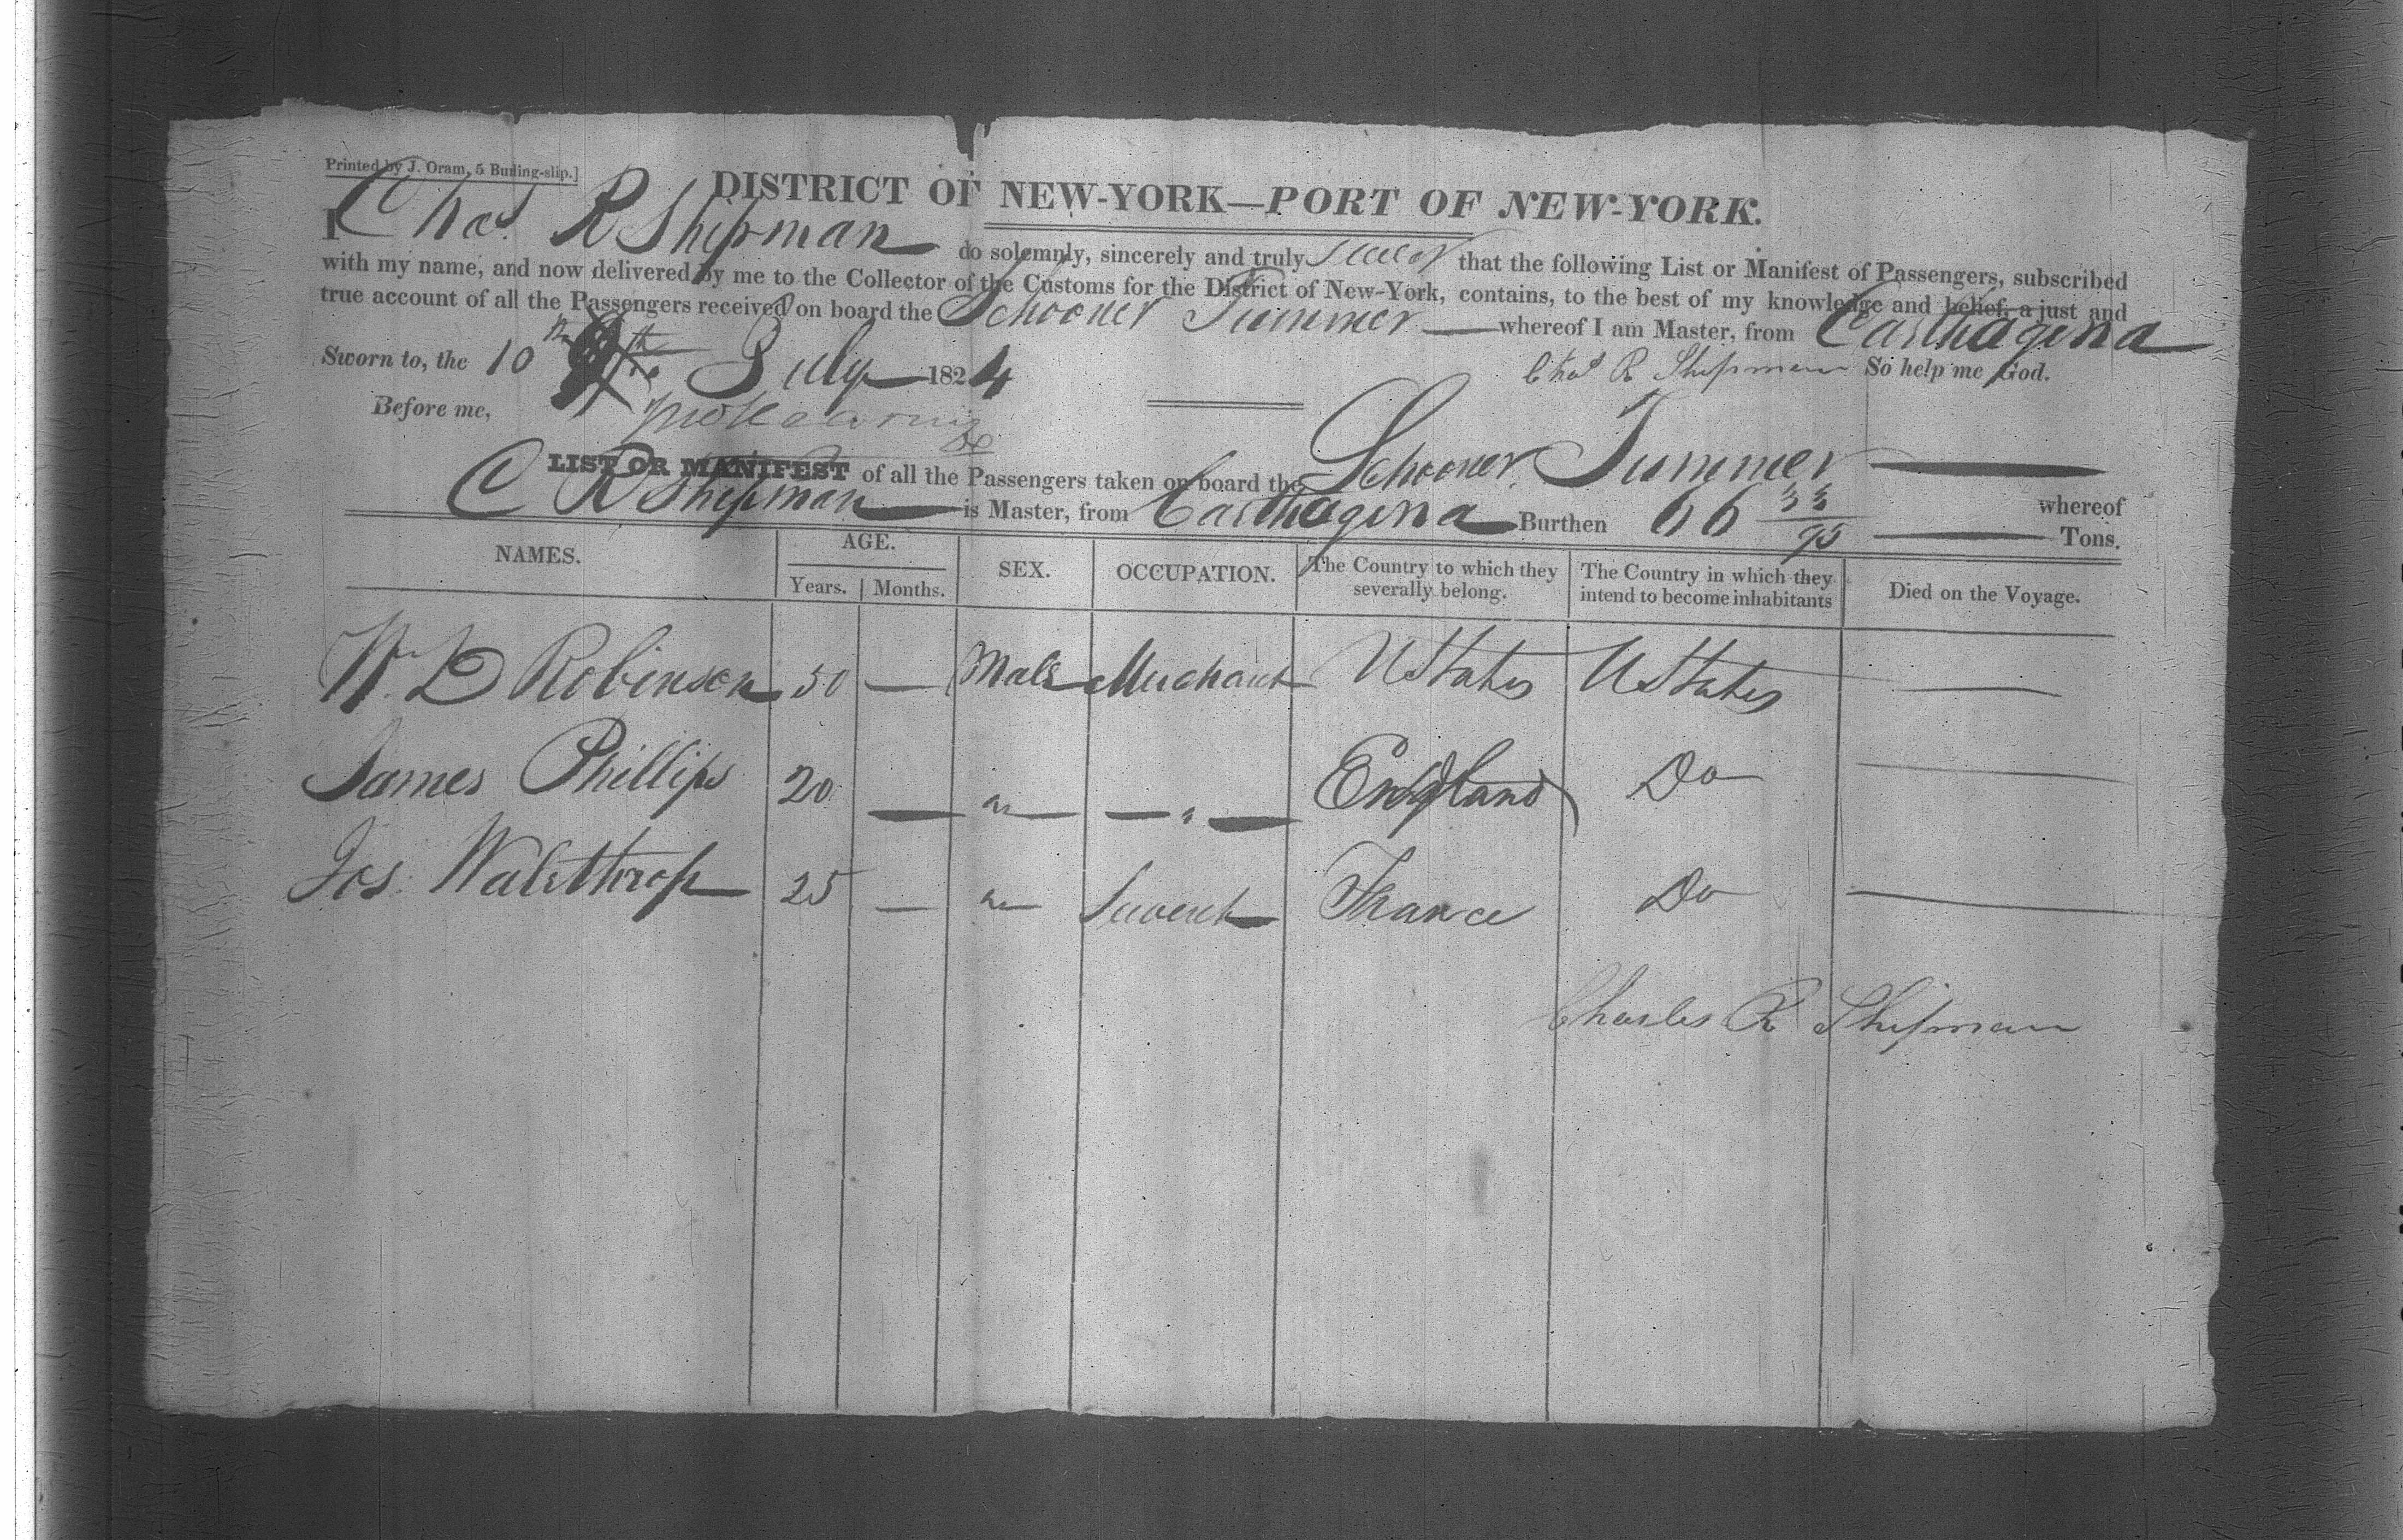 Printed by J. Oram, 5 Burling-slip.]
DISTRICT OF NEW-YORK—PORT OF NEW-YORK.
I Chas. R Shipman do solemnly, sincerely and truly swear that the following List or Manifest of Passengers, subscribed
with my name, and now delivered by me to the Collector of the Customs for the District of New-York, contains, to the best of my knowledge and belief, a just and
true account of all the Passengers received on board the Schooner whereof I am Master, from Carthagena
Sworn to, the 10th July 1824 Chas R Shipman So help me God.
Before me,
LIST OR MANIFEST of all the Passengers taken on board the Schooner whereof
C R Shipman is Master, from Carthagena Burthen 66 /95 Tons.
NAMES. AGE. SEX. OCCUPATION. The Country to which they severally belong. The Country in which they intend to become inhabitants Died on the Voyage.
Years. Months.
W. D Robinson 50 — Male Merchant U States U States —
James Phillips 20 — " — " — England Do —
Jos. 25 — " Servent France Do —
Charles R Shipman